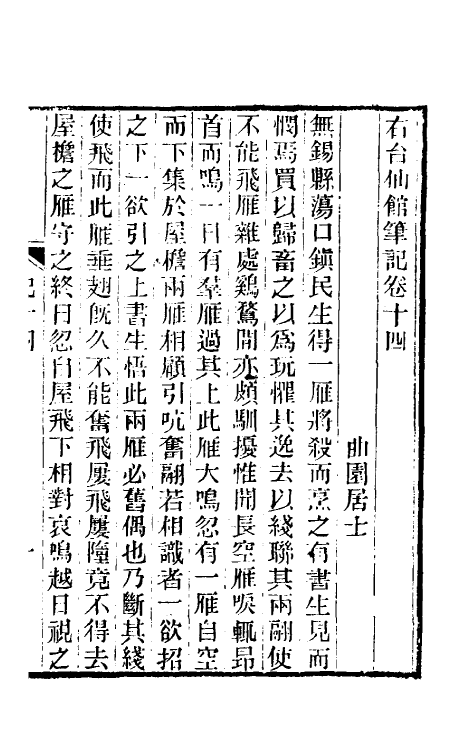 右台仙館筆記卷十四
曲園居士
無錫縣蕩口鎭民生得一雁將殺而烹之有書生見而
憫焉買以歸畜之以爲玩懼其逸去以綫聯其兩翮使
不能飛雁雜處鷄鶩間亦頗馴擾惟聞長空雁唳輒昂
首而鳴一日有羣雁過其上此雁大鳴忽有一雁自空
而下集於屋檐兩雁相顧引吭奮翮若相識者一欲招
之下一欲引之上書生悟此兩雁必舊偶也乃斷其綫
使飛而此雁垂翅旣久不能奮飛屢飛屢墮竟不得去
屋檐之雁守之終日忽自屋飛下相對哀鳴越日視之